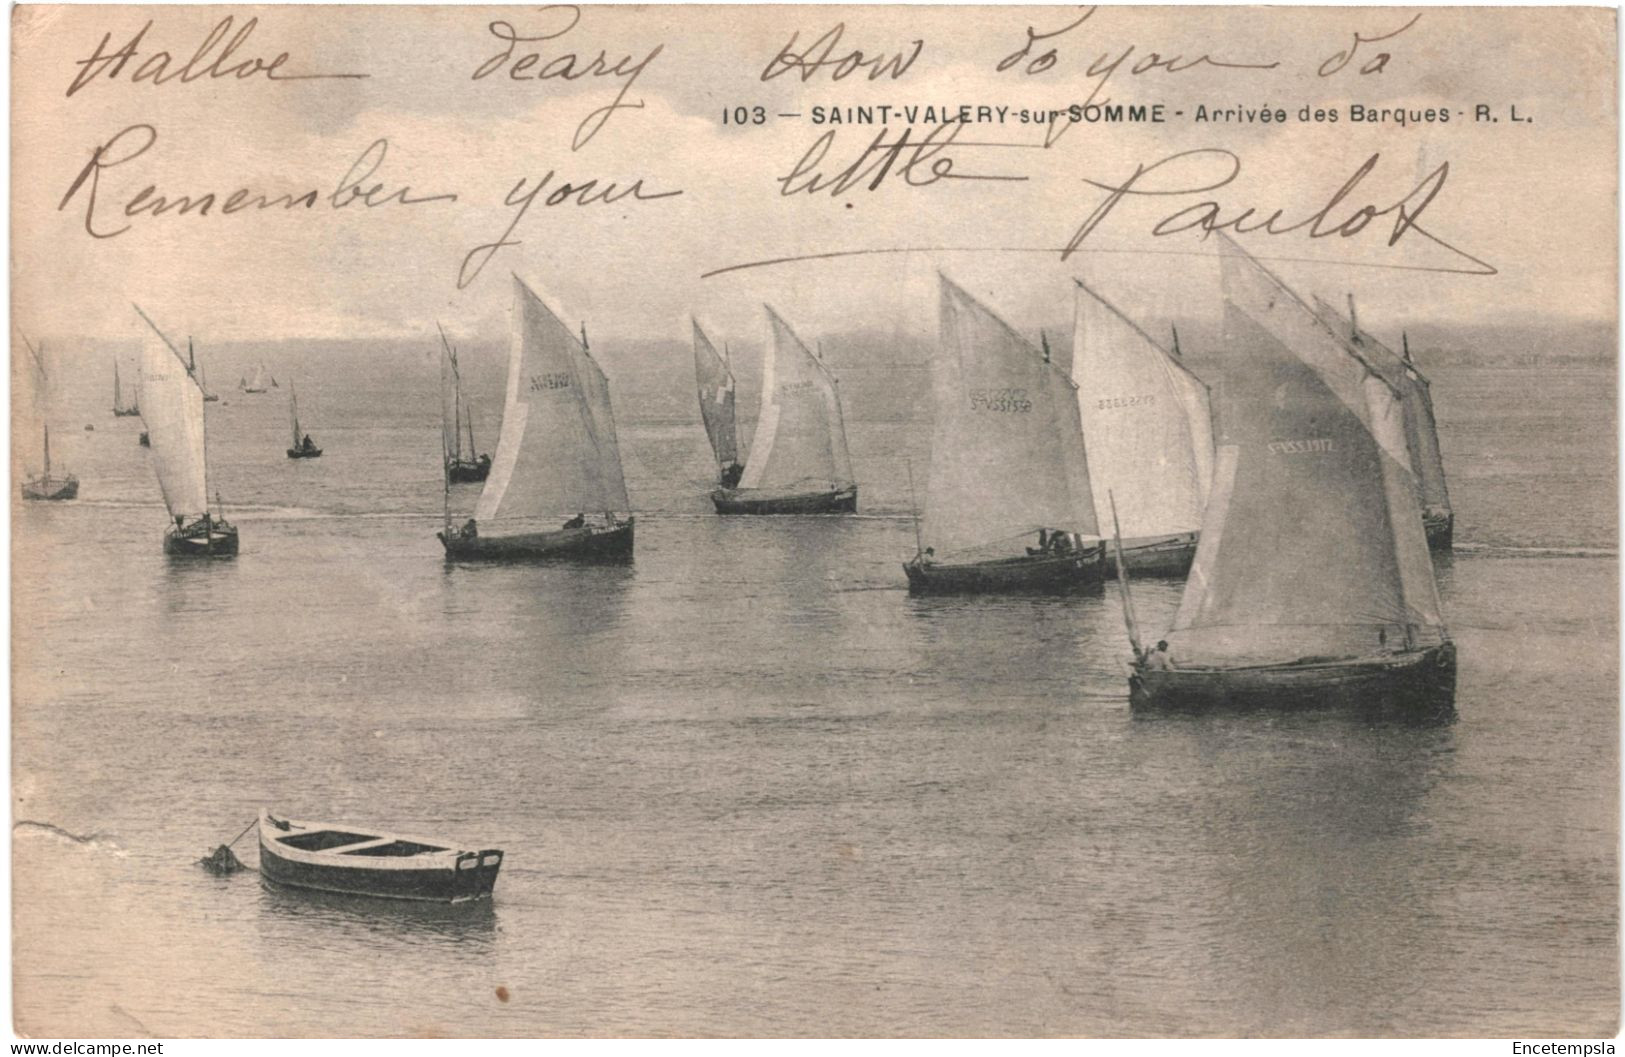 Halloe deary How do you do
103 — SAINT-VALERY-sur-SOMME - Arrivée des Barques - R. L.
Remember your little Paulot
www.delcampe.net
Encetempsla